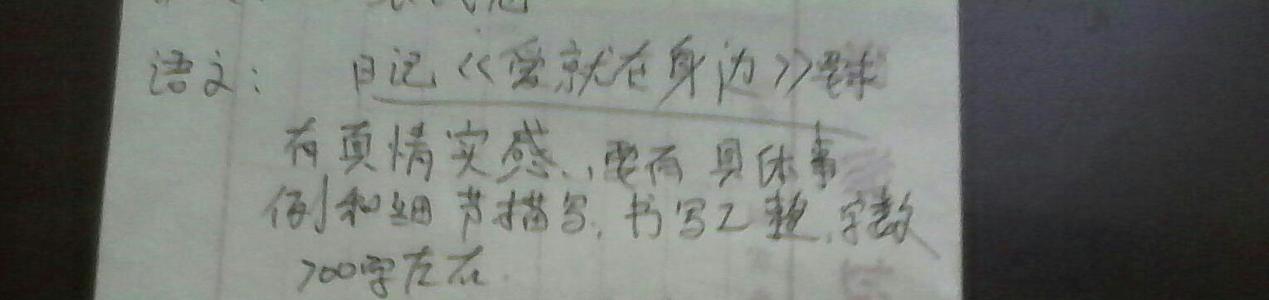 语文: 日记《爱就在身边》要求
有真情实感,要有具体事
例和细节描写,书写工整,字数
700字左右.